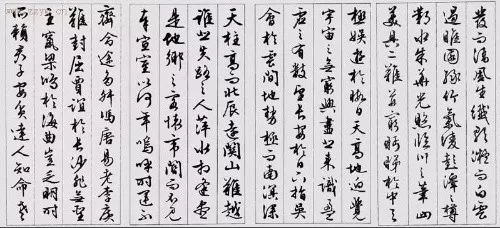 發而清風生纖歌凝而白雲
遏睢園綠竹氣凌彭澤之樽
鄴水朱華光照臨川之筆四
美具二難并窮睇眄於中天
極娛遊於暇日天高地迥覺
宇宙之無窮興盡悲來識盈
虛之有數望長安於日下指吳
會於雲間地勢極而南溟深
天柱高而北辰遠關山難越
誰悲失路之人萍水相逢盡
是他鄉之客懷帝閽而不見
奉宣室以何年嗚呼時運不
齊命途多舛馮唐易老李廣
難封屈賈誼於長沙非無聖
主竄梁鴻於海曲豈乏明時
所賴君子安貧達人知命老